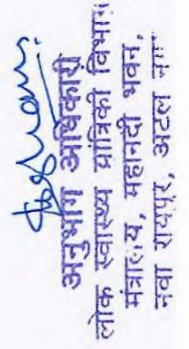 अनुभाग अधिकारी
लोक स्वास्थ्य यांत्रिकी विभाग
मंत्रालय, महानदी भवन,
नवा रायपुर, अटल